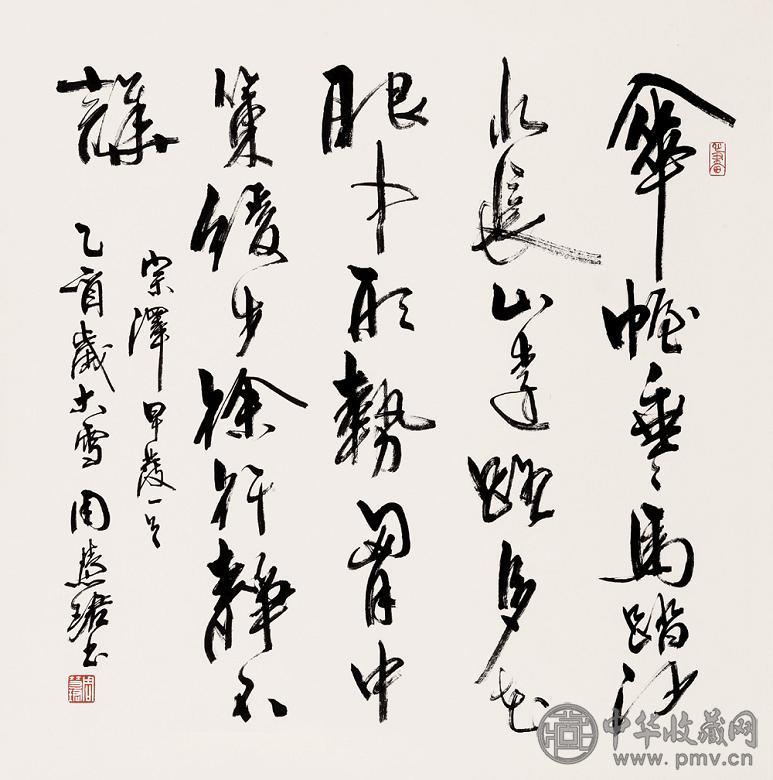 傘幄垂々馬踏沙
水長山遠路多花
眼中形勢胷中
策緩步徐行靜不
譁
宗澤早發一首
乙酉歲大雪 周慧珺書
中华收藏网
www.pmv.cn